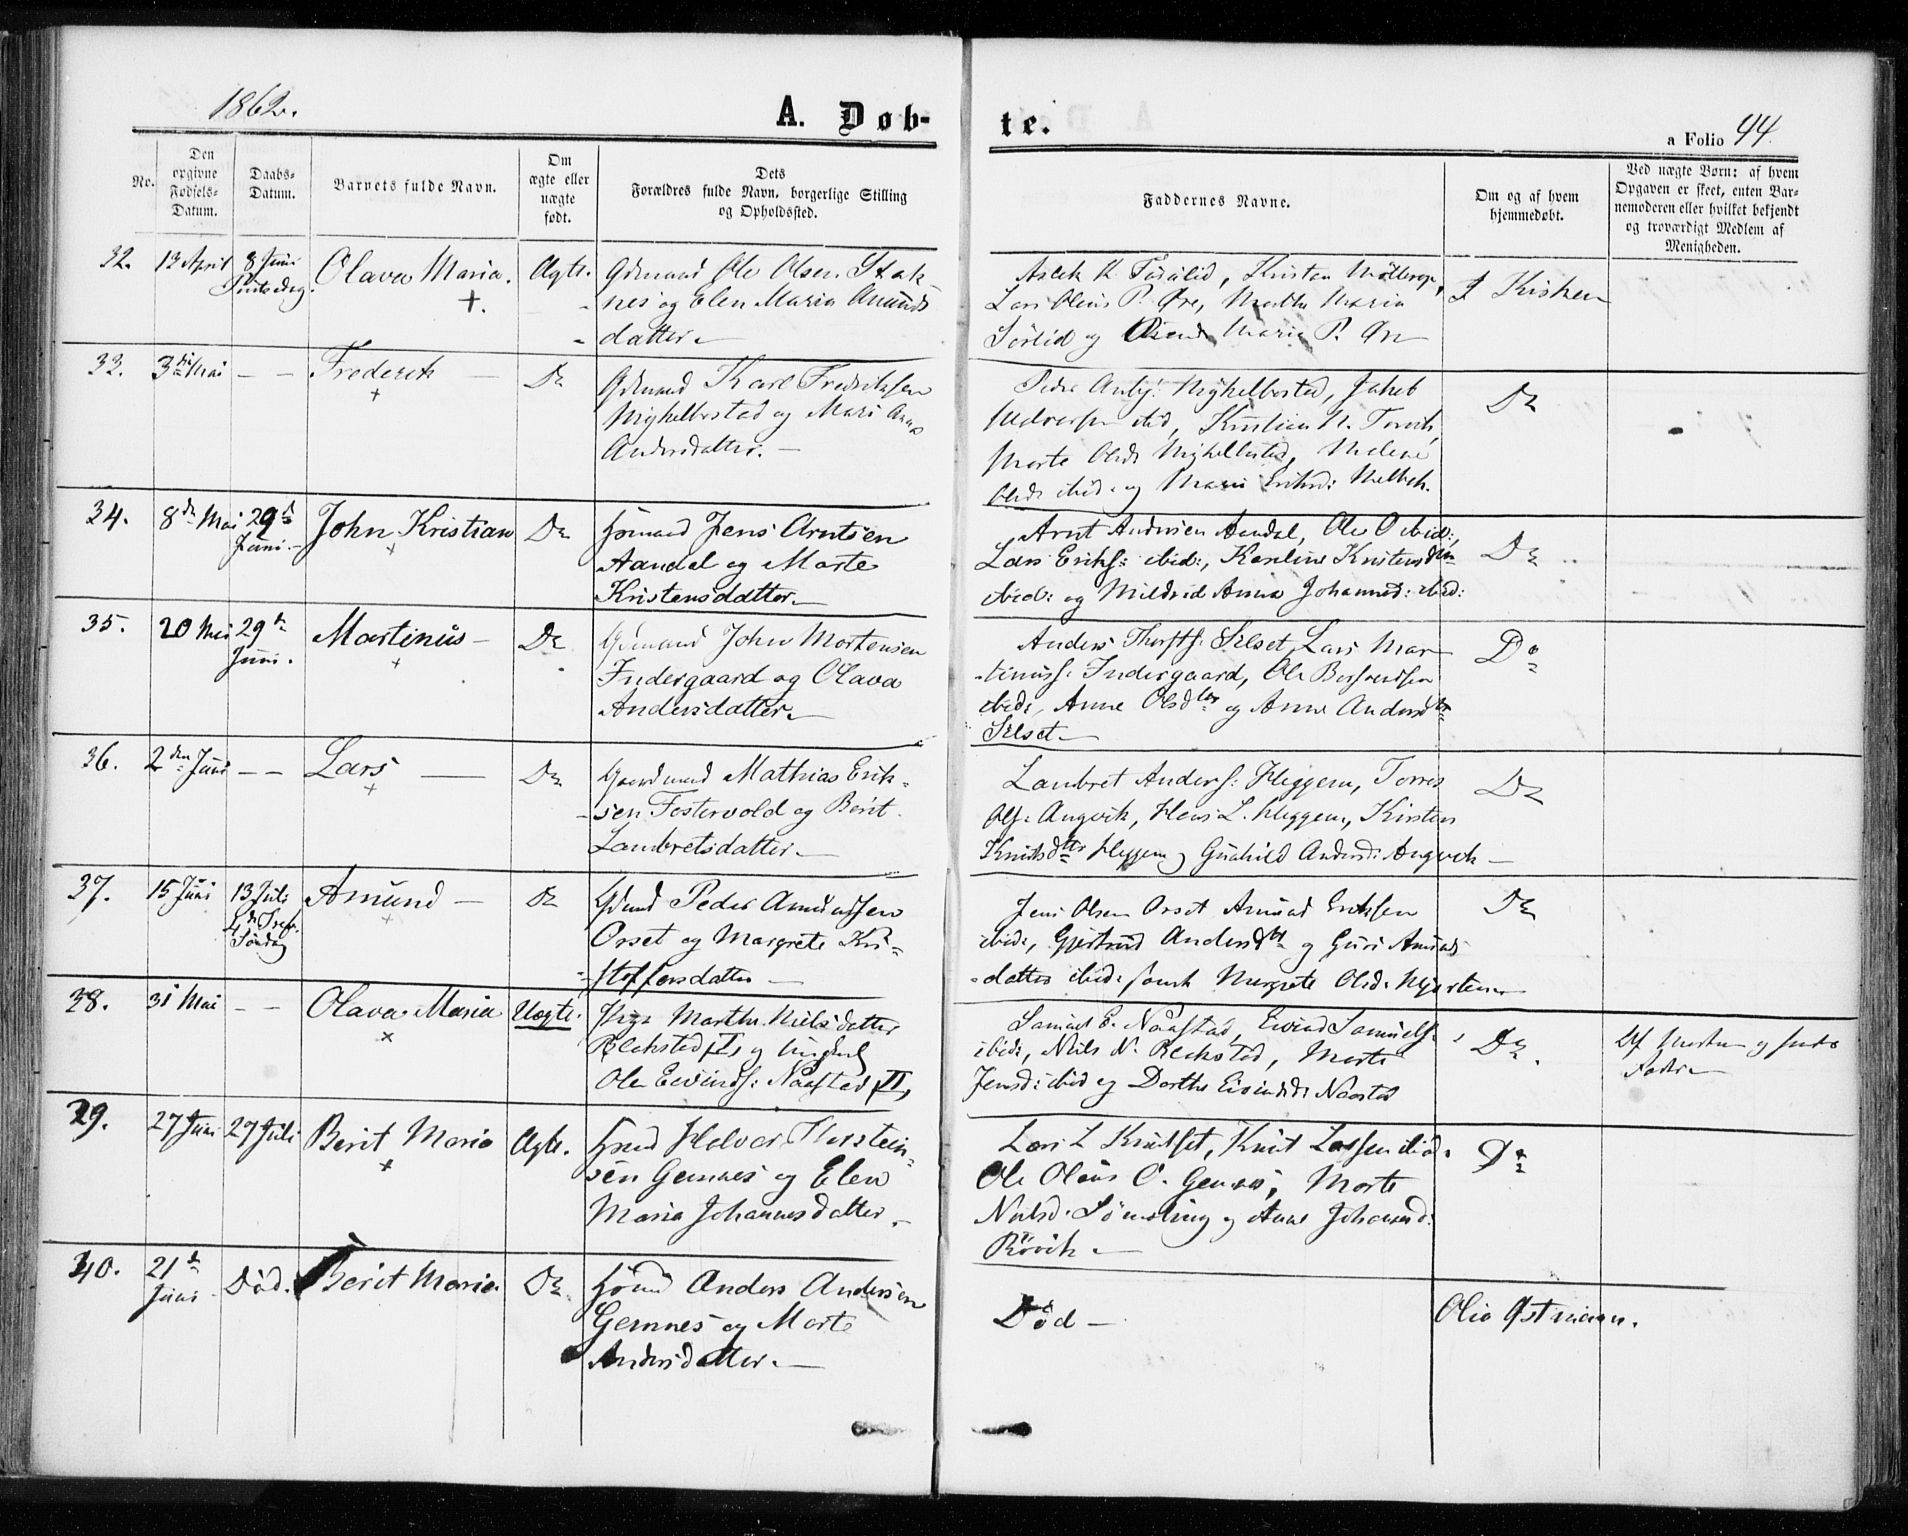 1862.
A. Døb-
te.
a Folio 44.
No.
Den
opgivne
Fødsels-
Datum.
Daabs-
Datum.
Barnets fulde Navn.
Om
ægte eller
uægte
født.
Dets
Forældres fulde Navn, borgerlige Stilling
og Opholdssted.
Faddernes Navne.
Om og af hvem
hjemmedøbt.
Ved uægte Børn: af hvem
Opgaven er skeet, enten Bar-
nemoderen eller hvilket bekjendt
og troværdigt Medlem af
Menigheden.
32.
13 April
8 Juni
Olava Maria.
+.
Ægte.
Gdmand Ole Olsen Stok-
nes og Elen Maria Amunds
datter
Lars Oleus P. Øre, Marthe Maria
Sørlid og Marie P. Øre
I Kirken
33.
3 Mai
— —
Frederik —
+
Do
Gdmand Karl Fredriksen
Mighelbostad og Mari Anna
Andersdatter. —
Peder Mighelbostad, Jakob
ibid, Kristian N. Torvik,
Marte Olsd: Mighelbostad, Malene
Olsd: ibid. og Mari Eriksd:
Do
34.
8de Mai
29de
Juni.
John Kristian
+
Do
Jens Arntsen
Aandal og Marte
Kristensdatter.
Arnt Andersen Aandal, Ole O ibid:,
Lars Eriks: ibid:, Karoline Kristensdtr
ibid: og Mildrid Anna Johannesd: ibid:
Do
35.
20 Mai
29de
Juni.
Martinus —
+
Do
Gdmand John Mortensen
Indergaard og Olava
Andersdatter.
Anders Thorsts: Silset, Lars Mar-
tinuss: Indergaard, Ole
ibid:, Anne Olsdter og Anne Andersdtr
Silset.
Do
36.
2den Juni
— —
Lars —
+
Do
Gaardmand Mathias Erik-
sen Fostervold og Berit
Lambretsdatter.
Lambret Anders: Heggem, Torres
Ols: Angvik, Hans L. Heggem, Kirsten
Knutsdtr Heggem og Gunhild Andersd: Angvik
Do
37.
15 Juni
13 Juli
4de Tref.
Søndag
Amund —
+
Do
Gdmd Peder Amundsen
Orset og Margrete Kri-
stoffersdatter —
Jens Olsen Orset Amund Eriksen
ibid:, Gjertrud Andersdtr og Guri Amunds
datter ibid: samt Margrete Olsd:
Do
38.
31 Mai
— —
Olava Maria
×
Uægte.
Pige Marthe Nielsdatter
Blekstad (I) og Ungkarl
Ole Eevinds: Naastad (II)
Samuel E. Naastad, Eivind Samuels:
ibid:, Niels N. Blekstad, Marte
Jensd: ibid og Dorthe Eivindsd: Naastad
Do
Af Moder og
39.
27 Juni
27 Juli
Berit Maria
+
Ægte.
Halvor Thorstein-
sen Gemnes og Elen
Maria Johannesdatter.
Lars L Knutset, Knut Larsen ibid.
Ole Oleus O. Gemnes, Marte
Nilsd: og Anne Johannesd:
Røvik.
Do
40.
21de
Juni
Død.
Berit Maria.
Do
Anders Andersen
Gemnes og Marte
Andersdatter. —
Død —
Olia Østmann.